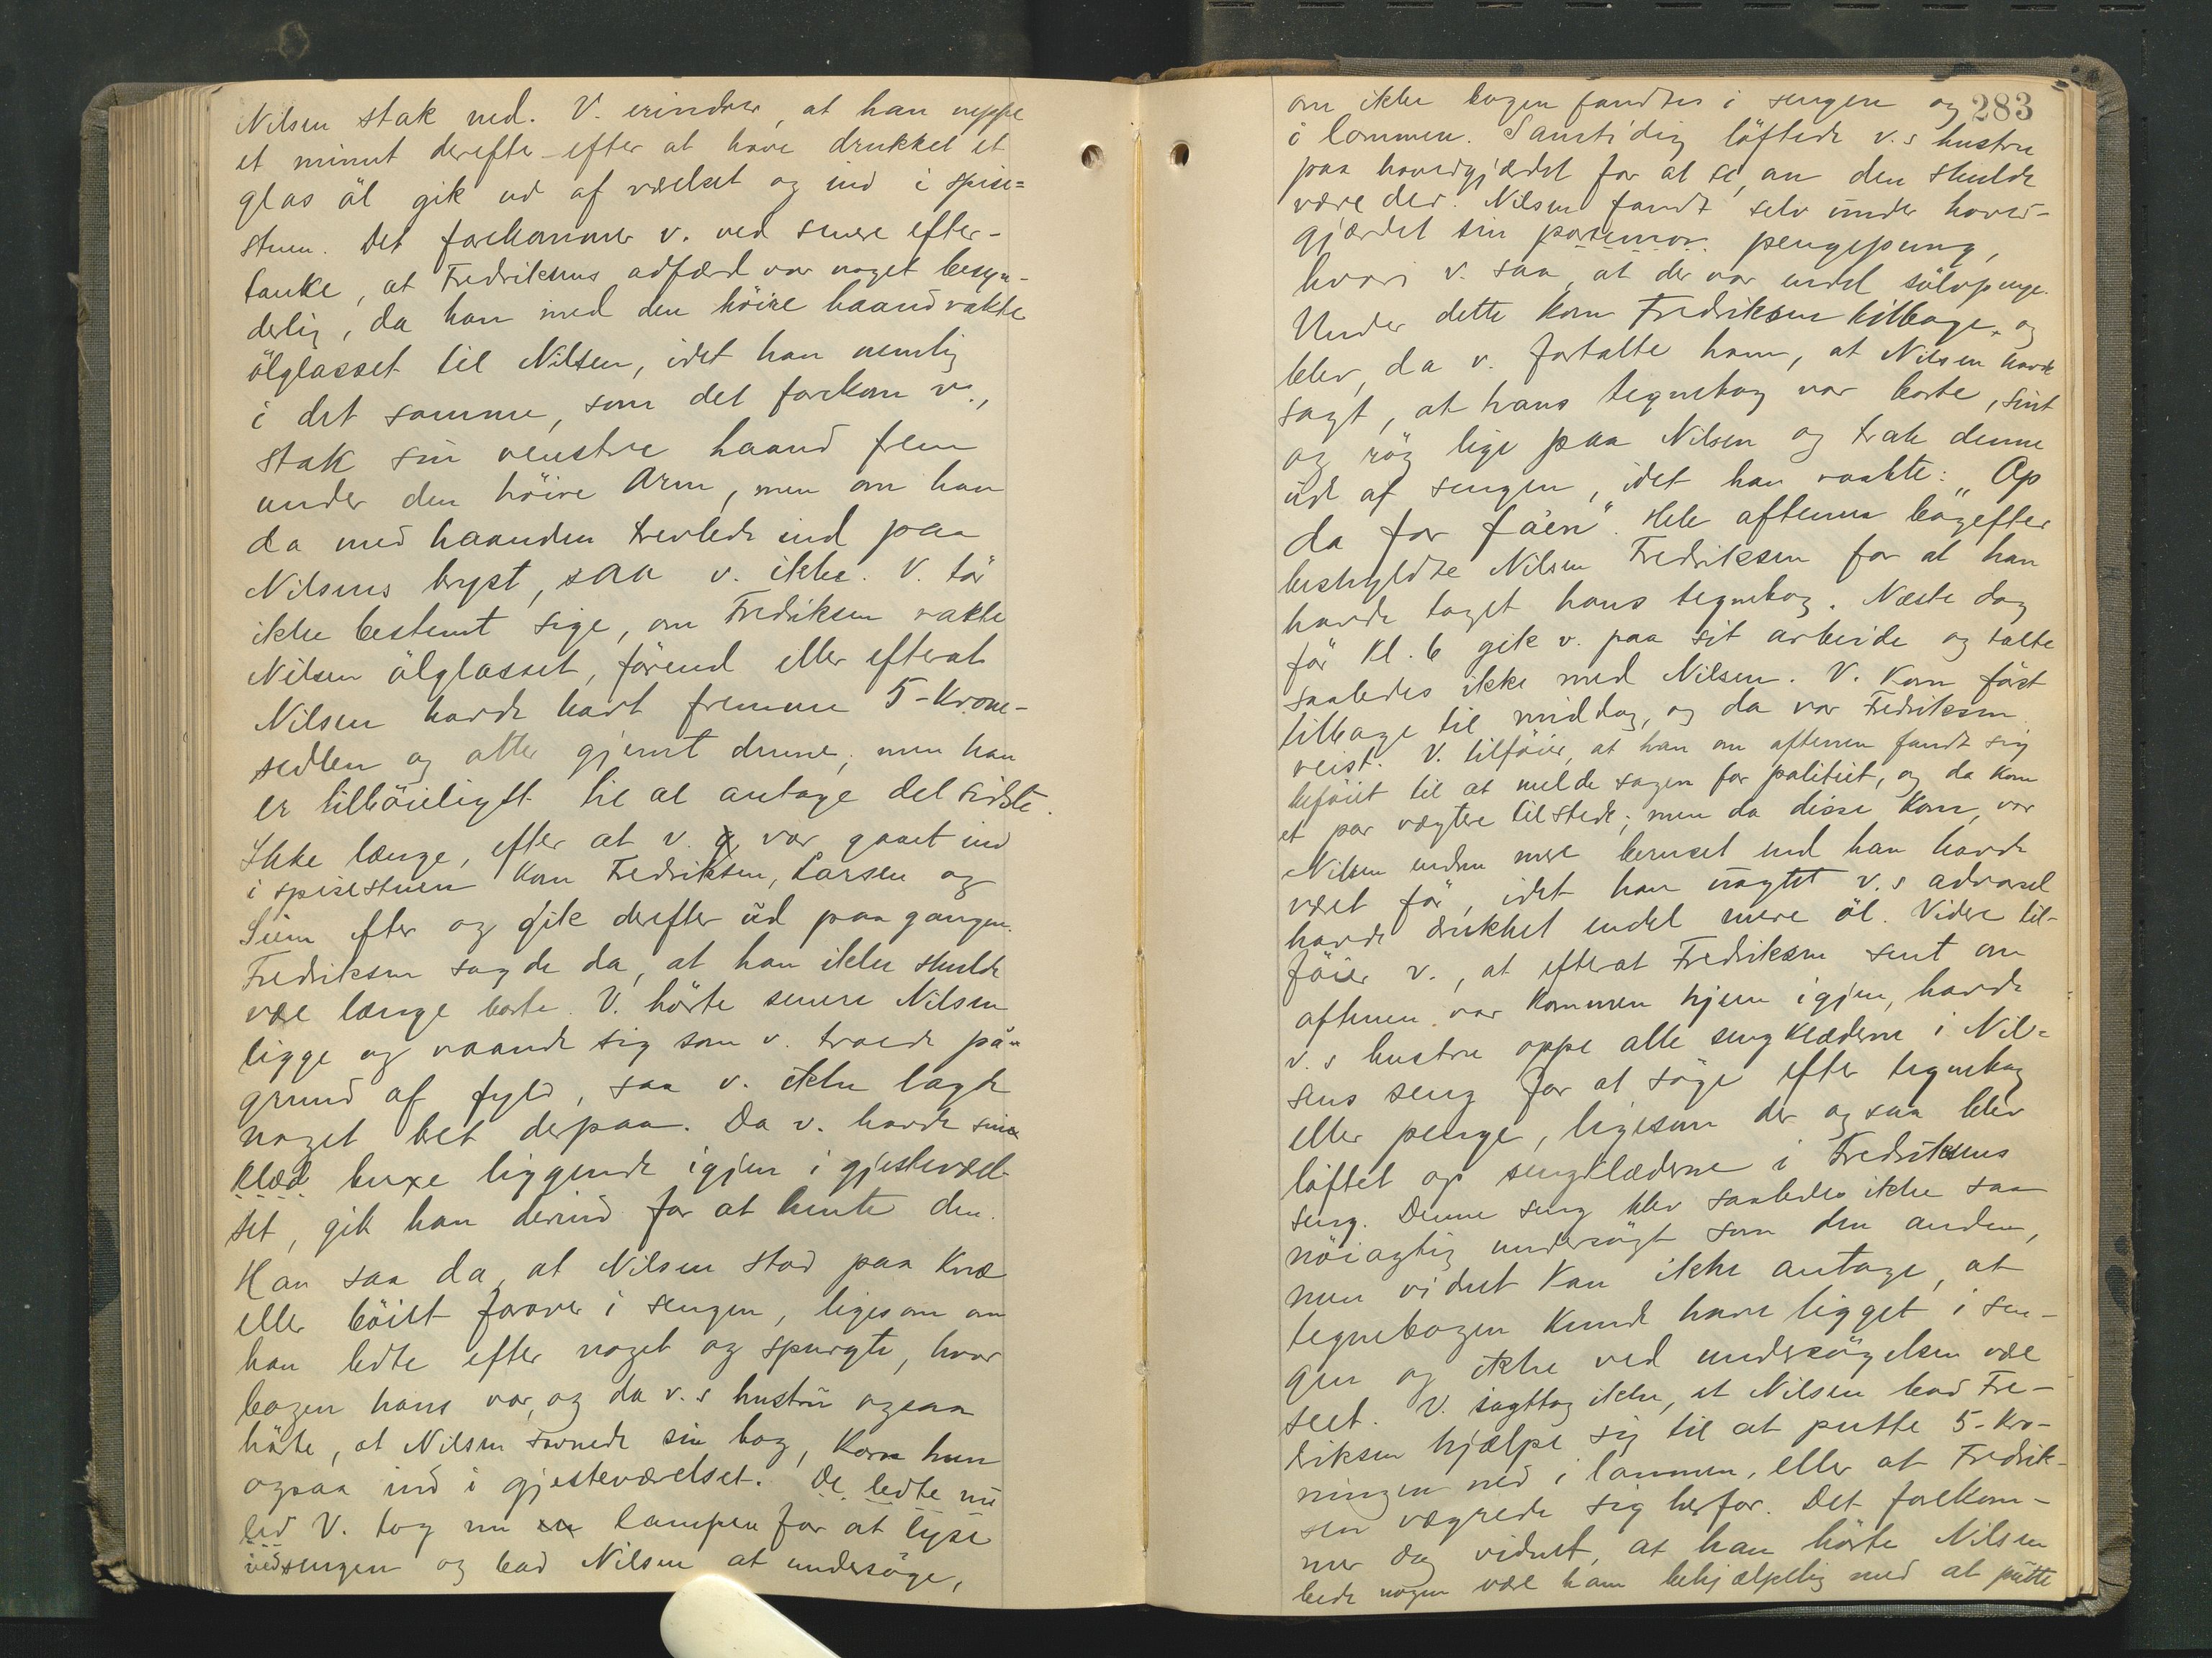 Nilsen stak ned. V. erindrer, at han neppe
et minut derefter - efter at have drukket et
glas öl gik ud af værelset og ind i spise=
stuen. Det forekommer v. ved senere efter-
tanke, at Fredriksens adfærd var noget besyn-
derlig, da han med den höire haand rakte
ölglasset til Nilsen, idet han nemlig
i det samme, som det forekom v.,
stak sin venstre haand frem
under den höire Arm, men om han
da med haanden trevlede ind paa
Nilsens bryst, saa v. ikke. V. tör
ikke bestemt sige, om Fredriksen rakte
Nilsen ölglasset, förend eller efterat
Nilsen havde havt fremme 5-krone-
sedlen og atter gjemt denne, men han
er tilböieligst til at antage det sidste.
Ikke længe, efter at v. var gaaet ind
i spisestuen kom Fredriksen, Larsen og
Siem efter og gik derefter ud paa gangen.
Fredriksen sagde da, at han ikke skulde
være længe borte. V. hörte senere Nilsen
ligge og vaande sig som v. troede på
grund af fyld, saa v. ikke lagde
noget bet derpaa. Da v. havde sin
klæd buxe liggende igjen i gjesteværel-
set, gik han derind for at hente den.
Han saa da, at Nilsen stod paa knæ
eller böiet forover i sengen, ligesom om
han ledte efter noget og spurgte, hvor
bogen hans var, og da v.s hustru ogsaa
hörte, at Nilsen savnede sin bog, kom hun
ogsaa ind i gjesteværelset. De ledte nu
led V. tog nu en lampen for at lyse
ved sengen og bad Nilsen at undersöge,
283
om ikke bogen fandtes i sengen og
i lommen. Samtidig löftede v.s hustru
paa hovedgjærdet for at se, om den skulde
være der. Nilsen fandt selv under hoved-
gjærdet sin portemon. pengepung,
hvori v. saa, at der var endel sölvpenge.
Under dette kom Fredriksen tilbage, og
blev, da v. fortalte ham, at Nilsen havde
sagt, at hans tegnebog var borte, sint
og rög lige paa Nilsen og trak denne
ud af sengen, idet han raabte: "Op
da for fáen". Hele aftenen bagefter
beskyldte Nilsen Fredriksen for at han
havde taget hans tegnebog. Næste dag
för kl. 6 gik v. paa sit arbeide og talte
saaledes ikke med Nilsen. V. kom först
tilbage til middag, og da var Fredriksen
reist. V. tilföier, at han om aftenen fandt sig
beföiet til at melde sagen for politiet, og da kom
et par vægtere tilstede; men da disse kom, var
Nilsen endnu mere beruset end han havde
været för, idet han uagtet v.s advarsel
havde drukket endel mere öl. Videre til-
föier v., at efterat Fredriksen sent om
aftenen var kommen hjem igjen, havde
v.s hustru oppe alle sengklæderne i Nil=
sens seng for at söge efter tegnebog
eller penge, ligesom der ogsaa blev
löftet op sengklæderne i Fredriksens
seng. Denne seng blev saaledes ikke saa
nöiagtig undersögt som den anden,
men vidnet kan ikke antage, at
tegnebogen kunde have ligget i sen-
gen og ikke ved undersögelsen være
seet. V. iagttog ikke, at Nilsen bad Fre-
driksen hjælpe sig til at putte 5-kro-
ningen ned i lommen, eller at Fredrik-
sen vægrede sig herfor. Det forekom-
mer dog vidnet, at han hörte Nilsen
bede nogen være ham behjælpelig med at putte